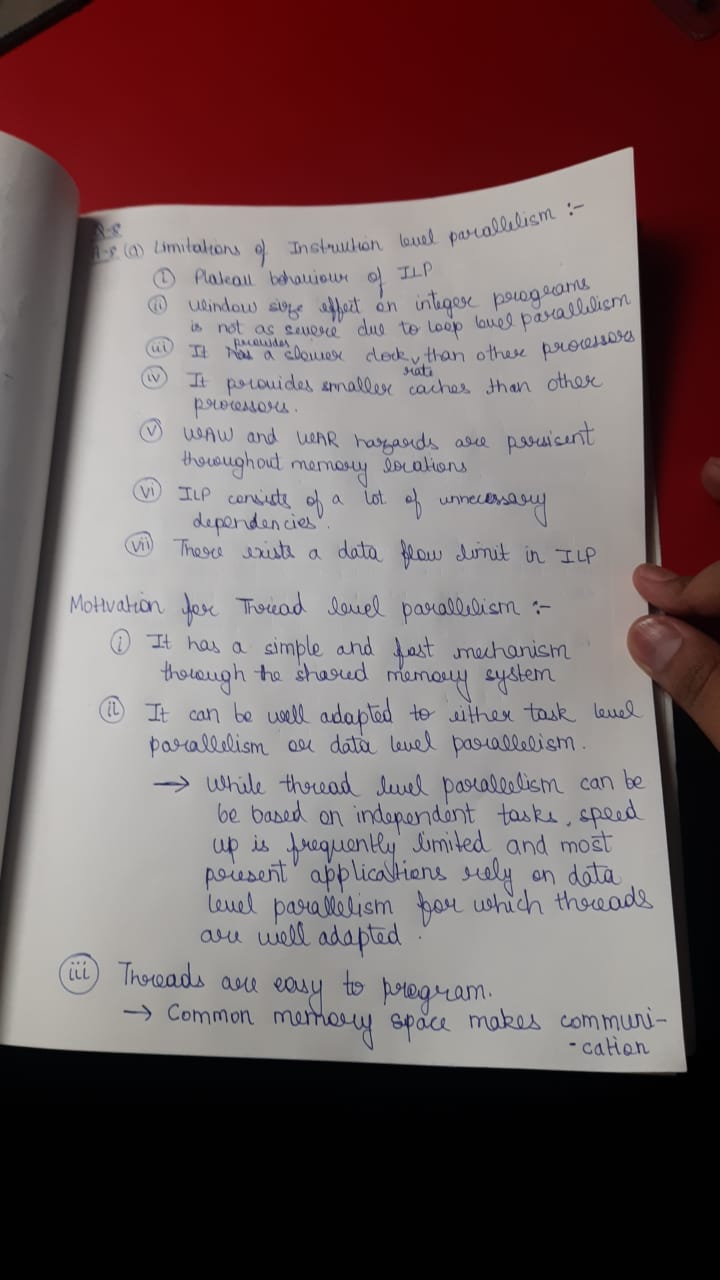 A-8
A-8 (a) Limitations of Instruction level parallelism :-
(i) Plateau behaviour of ILP
(ii) Window size effect on integer programs
is not as severe due to loop level parallelism
(iii) It provides a slower clock rate than other processors
(iv) It provides smaller caches than other
processors.
(v) WAW and WAR hazards are persisent
throughout memory locations
(vi) ILP consists of a lot of unnecessary
dependencies.
(vii) There exists a data flow limit in ILP
Motivation for Thread level parallelism :-
(i) It has a simple and fast mechanism
through the shared memory system
(ii) It can be well adapted to either task level
parallelism or data level parallelism.
→ While thread level parallelism can be
be based on independent tasks, speed
up is frequently limited and most
present applications rely on data
level parallelism for which threads
are well adapted.
(iii) Threads are easy to program.
→ Common memory space makes communi-
-cation